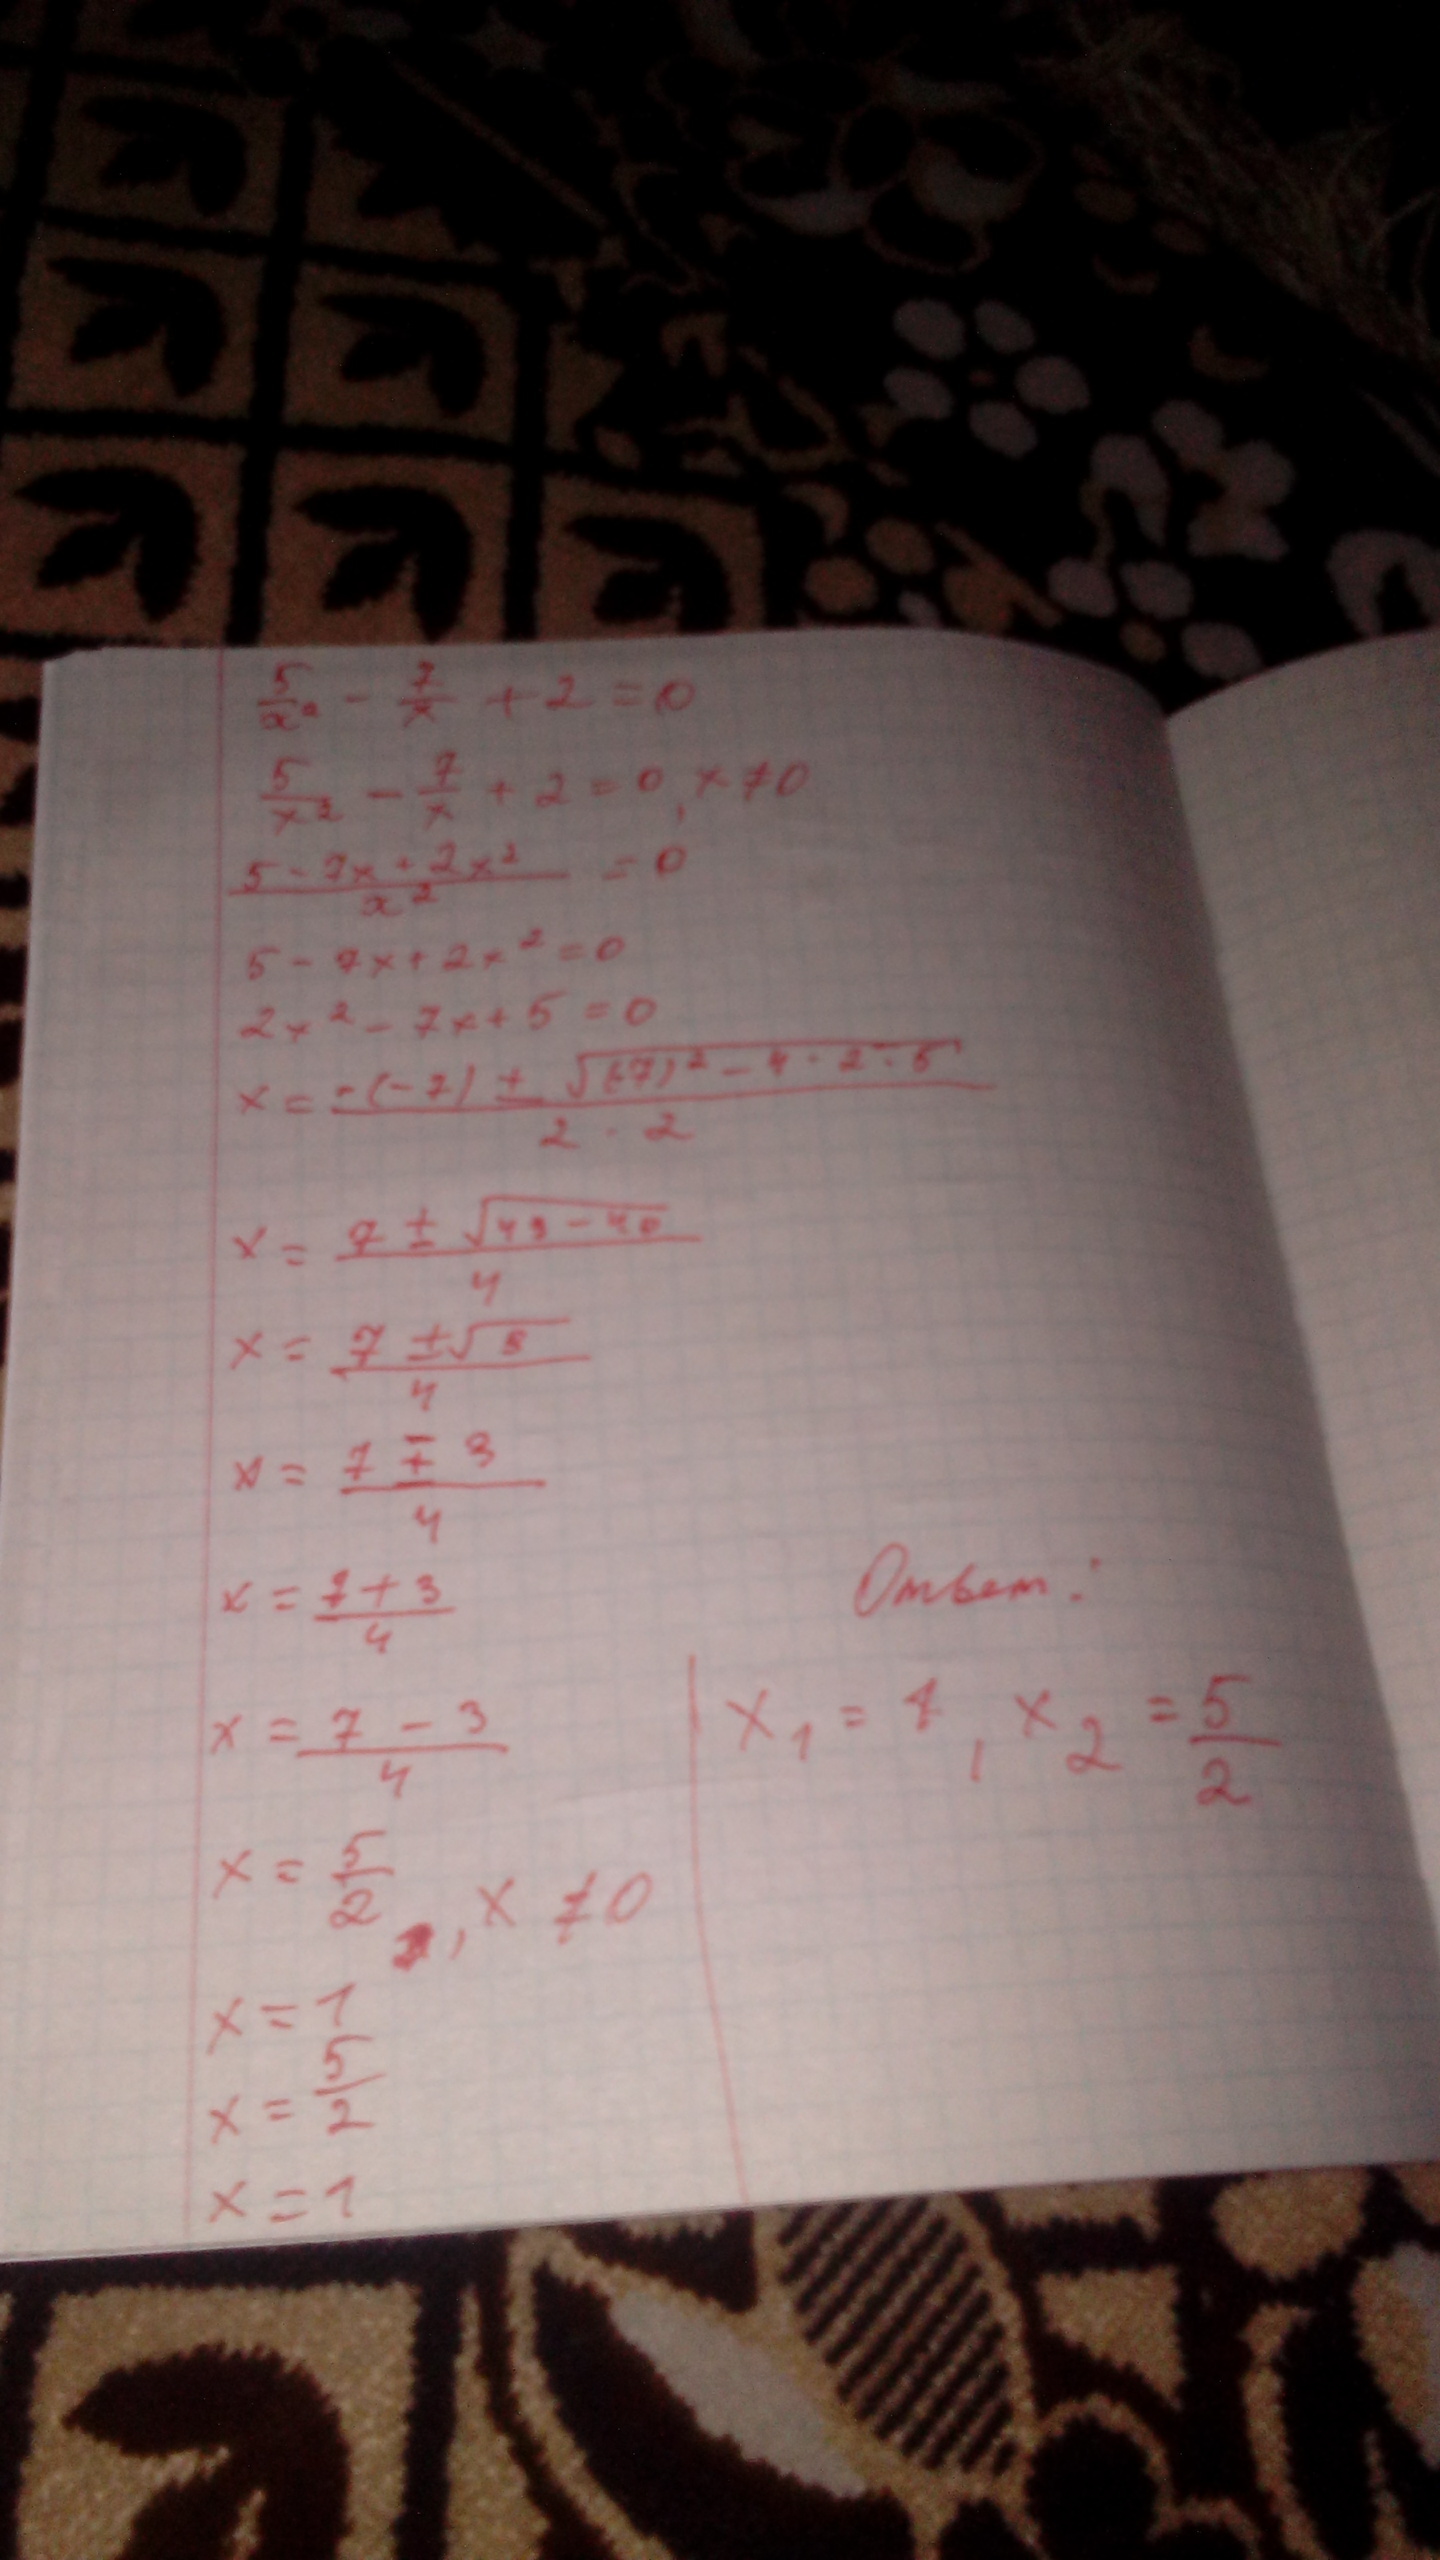 5/x² - 7/x + 2 = 0
5/x² - 7/x + 2 = 0, x ≠ 0
(5 - 7x + 2x²)/x² = 0
5 - 7x + 2x² = 0
2x² - 7x + 5 = 0
x = (-(-7) ± √((-7)² - 4 · 2 · 5))/(2 · 2)
x = (7 ± √(49 - 40))/4
x = (7 ± √9)/4
x = (7 ± 3)/4
x = (7 + 3)/4
x = (7 - 3)/4
x = 5/2, x ≠ 0
x = 1
x = 5/2
x = 1
Ответ:
x₁ = 1, x₂ = 5/2